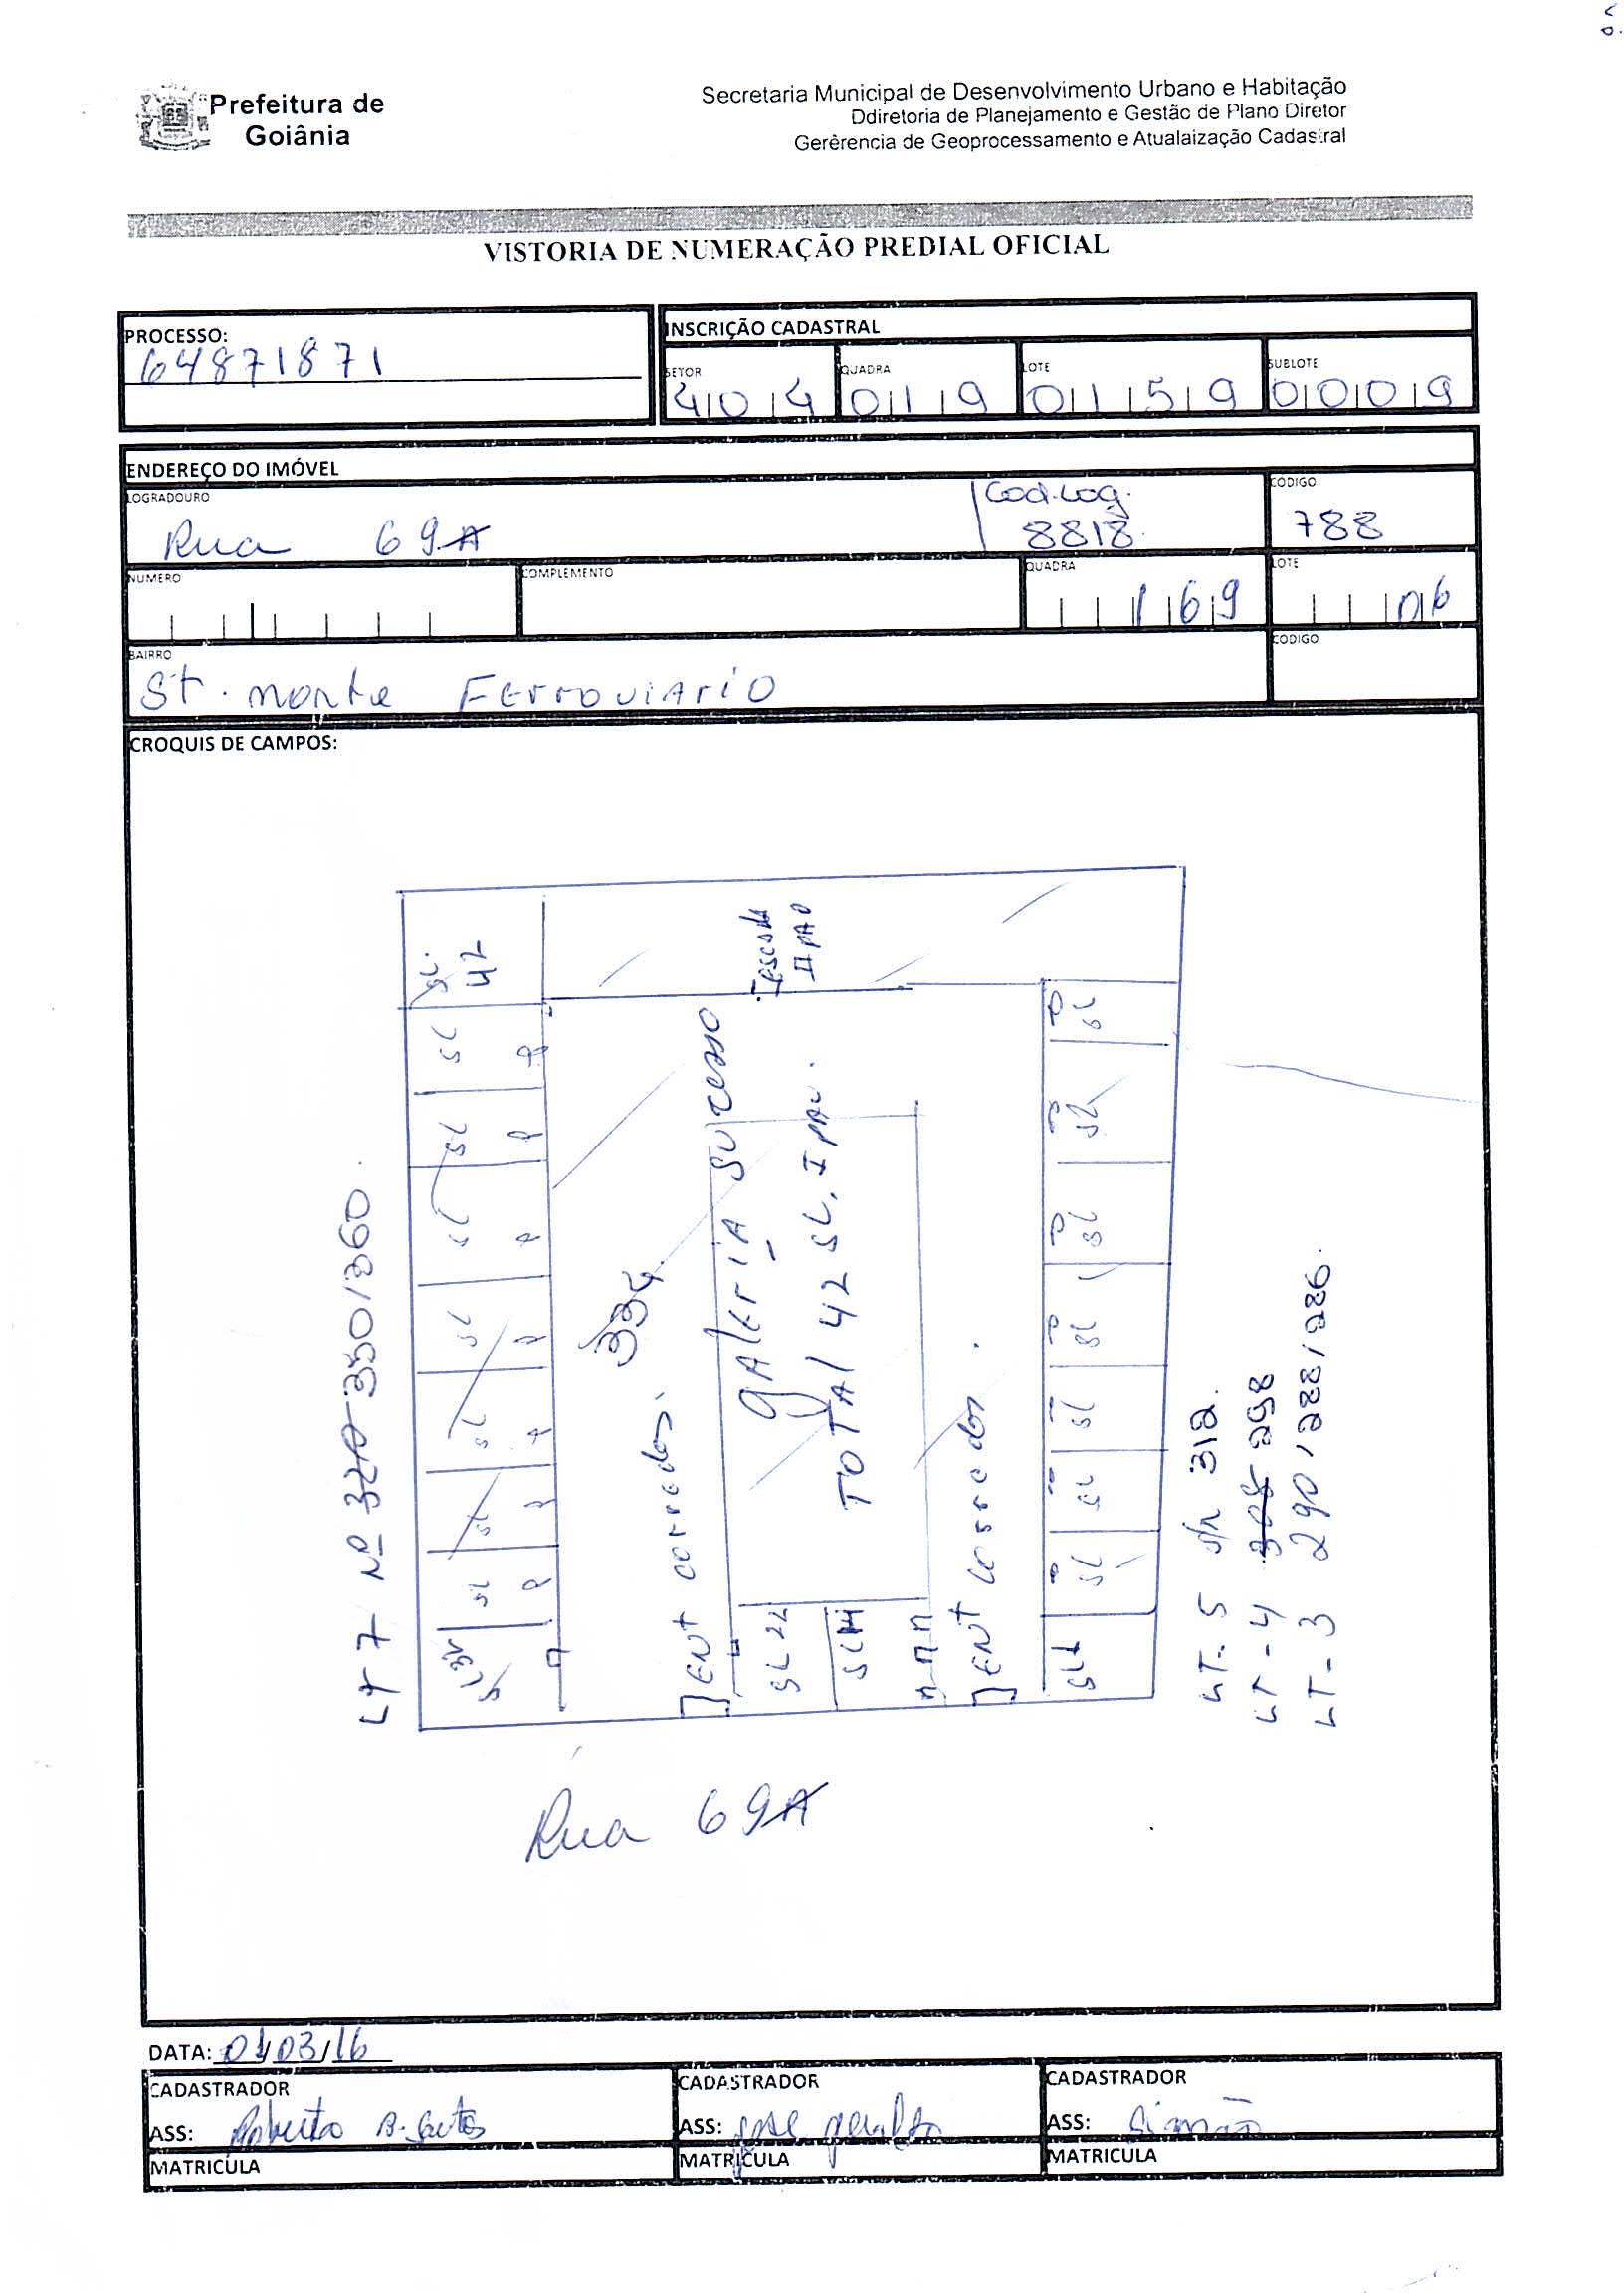 Prefeitura de
Goiânia
Secretaria Municipal de Desenvolvimento Urbano e Habitação
Ddiretoria de Planejamento e Gestão de Plano Diretor
Gerêrencia de Geoprocessamento e Atualaização Cadastral
VISTORIA DE NUMERAÇÃO PREDIAL OFICIAL
PROCESSO:
64871871
INSCRIÇÃO CADASTRAL
SETOR
404
QUADRA
019
LOTE
0159
SUBLOTE
0009
ENDEREÇO DO IMÓVEL
LOGRADOURO
Rua 69A
Cod.Log.
8818
CODIGO
788
NUMERO
COMPLEMENTO
QUADRA
169
LOTE
06
BAIRRO
St. Norte Ferroviario
CODIGO
CROQUIS DE CAMPOS:
SL. 42
SL P
SL P
SL P
SL P
SL P
SL P
SL P
Lt 7 Nº 370 350/360.
334
I escada
II PAO
galeria Sucesso
TOTAL 42 SL. I PAV.
ENt corredor.
SL 22
ENt corredor.
SL
SL
SL
SL
SL
SL
SL
SL 1
LT. 5 S/N 312.
LT - 4 308 298
LT - 3 290/288/286.
Rua 69A
DATA: 01/03/16
CADASTRADOR
ASS: Roberto B. Santos
MATRICULA
CADASTRADOR
ASS: Jose geraldo
MATRICULA
CADASTRADOR
ASS: Simão
MATRICULA